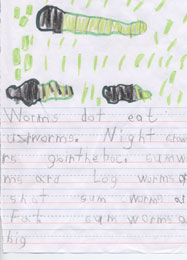 Worms dot eat
us worms. Night craw
rs. gointhehoc. sumw
ms ard Log worms ar
shot sum worms ar
Fat sum worms a
big